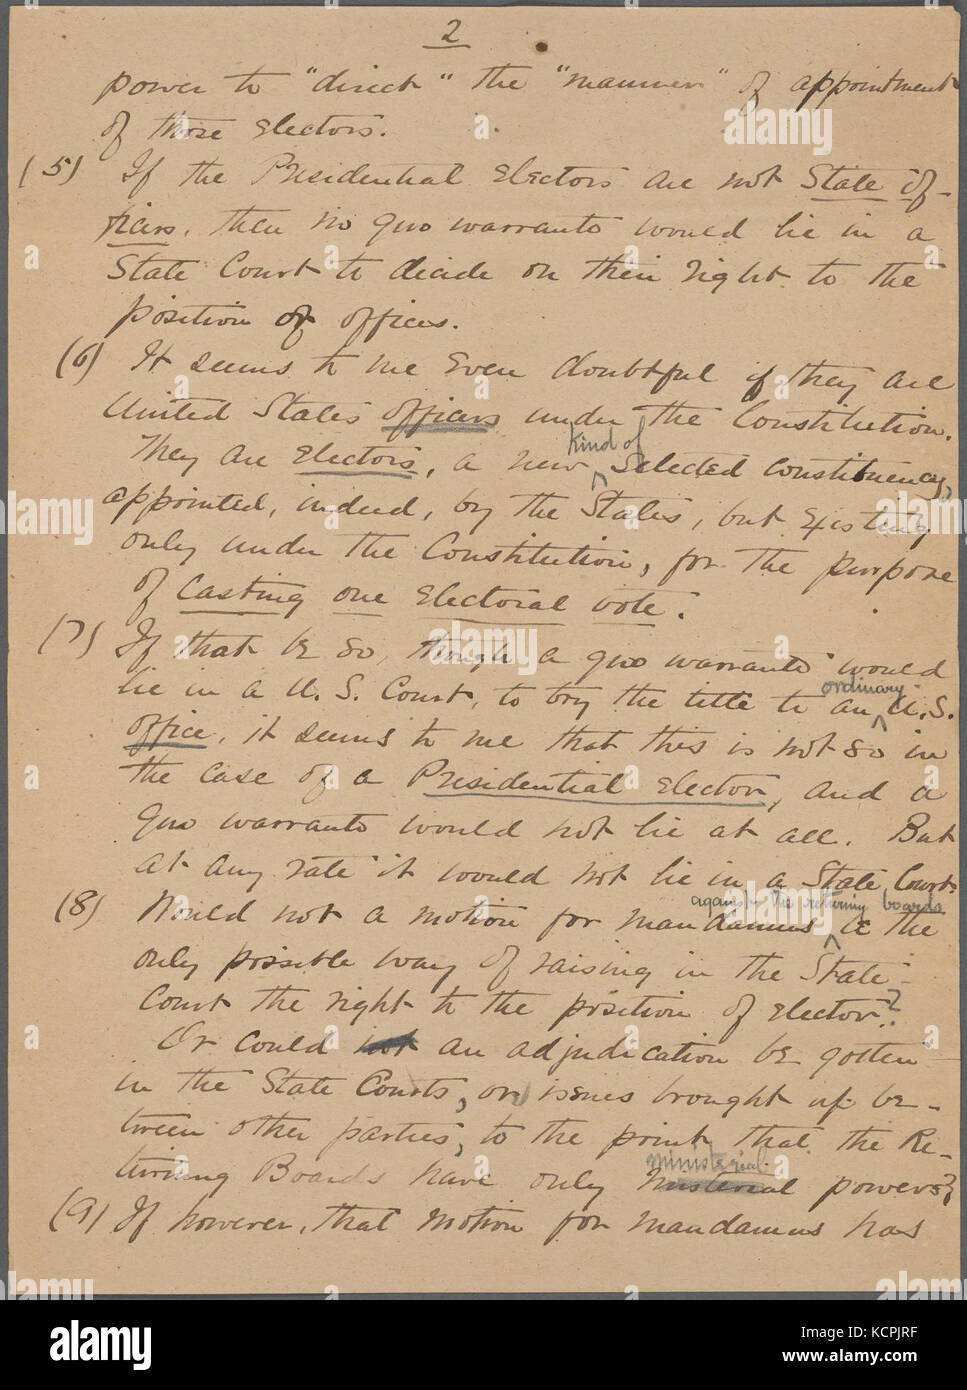 2
power to "direct" the "manner" of appointment
of those Electors.
(5) If the Presidential Electors are not State Of-
ficers, then no quo warranto would lie in a
State Court to decide on their right to the
position or offices.
(6) It seems to me even doubtful if they are
United States officers under the Constitution.
They are Electors, a new kind of selected constituency,
appointed, indeed, by the States, but existing
only under the Constitution, for the purpose
of casting one Electoral vote.
(7) If that be so, though a quo warranto would
lie in a U.S. Court, to try the title to an ordinary U.S.
office, it seems to me that this is not so in
the case of a Presidential Elector, and a
quo warranto would not lie at all. But
at any rate it would not lie in a State Court.
(8) Would not a motion for mandamus against the returning boards be the
only possible way of raising in the State
Court the right to the position of Elector?
Or could not an adjudication be gotten
in the State Courts, on issues brought up be-
tween other parties, to the point that the Re-
turning Boards have only ministerial powers?
(9) If however, that motion for mandamus has
alamy
Image ID: KCPJRF
www.alamy.com